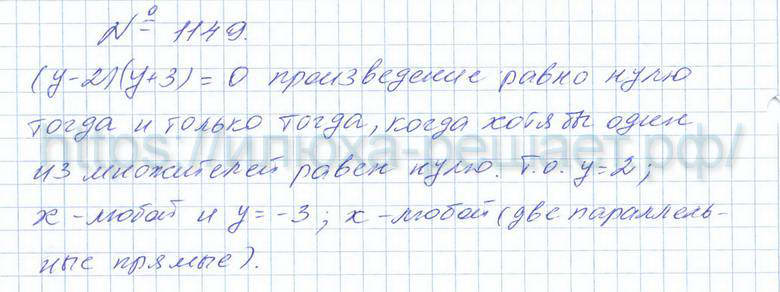 № 1149.
(y-2)(y+3) = 0 произведение равно нулю
тогда и только тогда, когда хотя бы один
https://илюха-решает.рф/
из множителей равен нулю. Т.о. y=2;
x - любой и y = -3; x - любой (две параллель-
ные прямые).